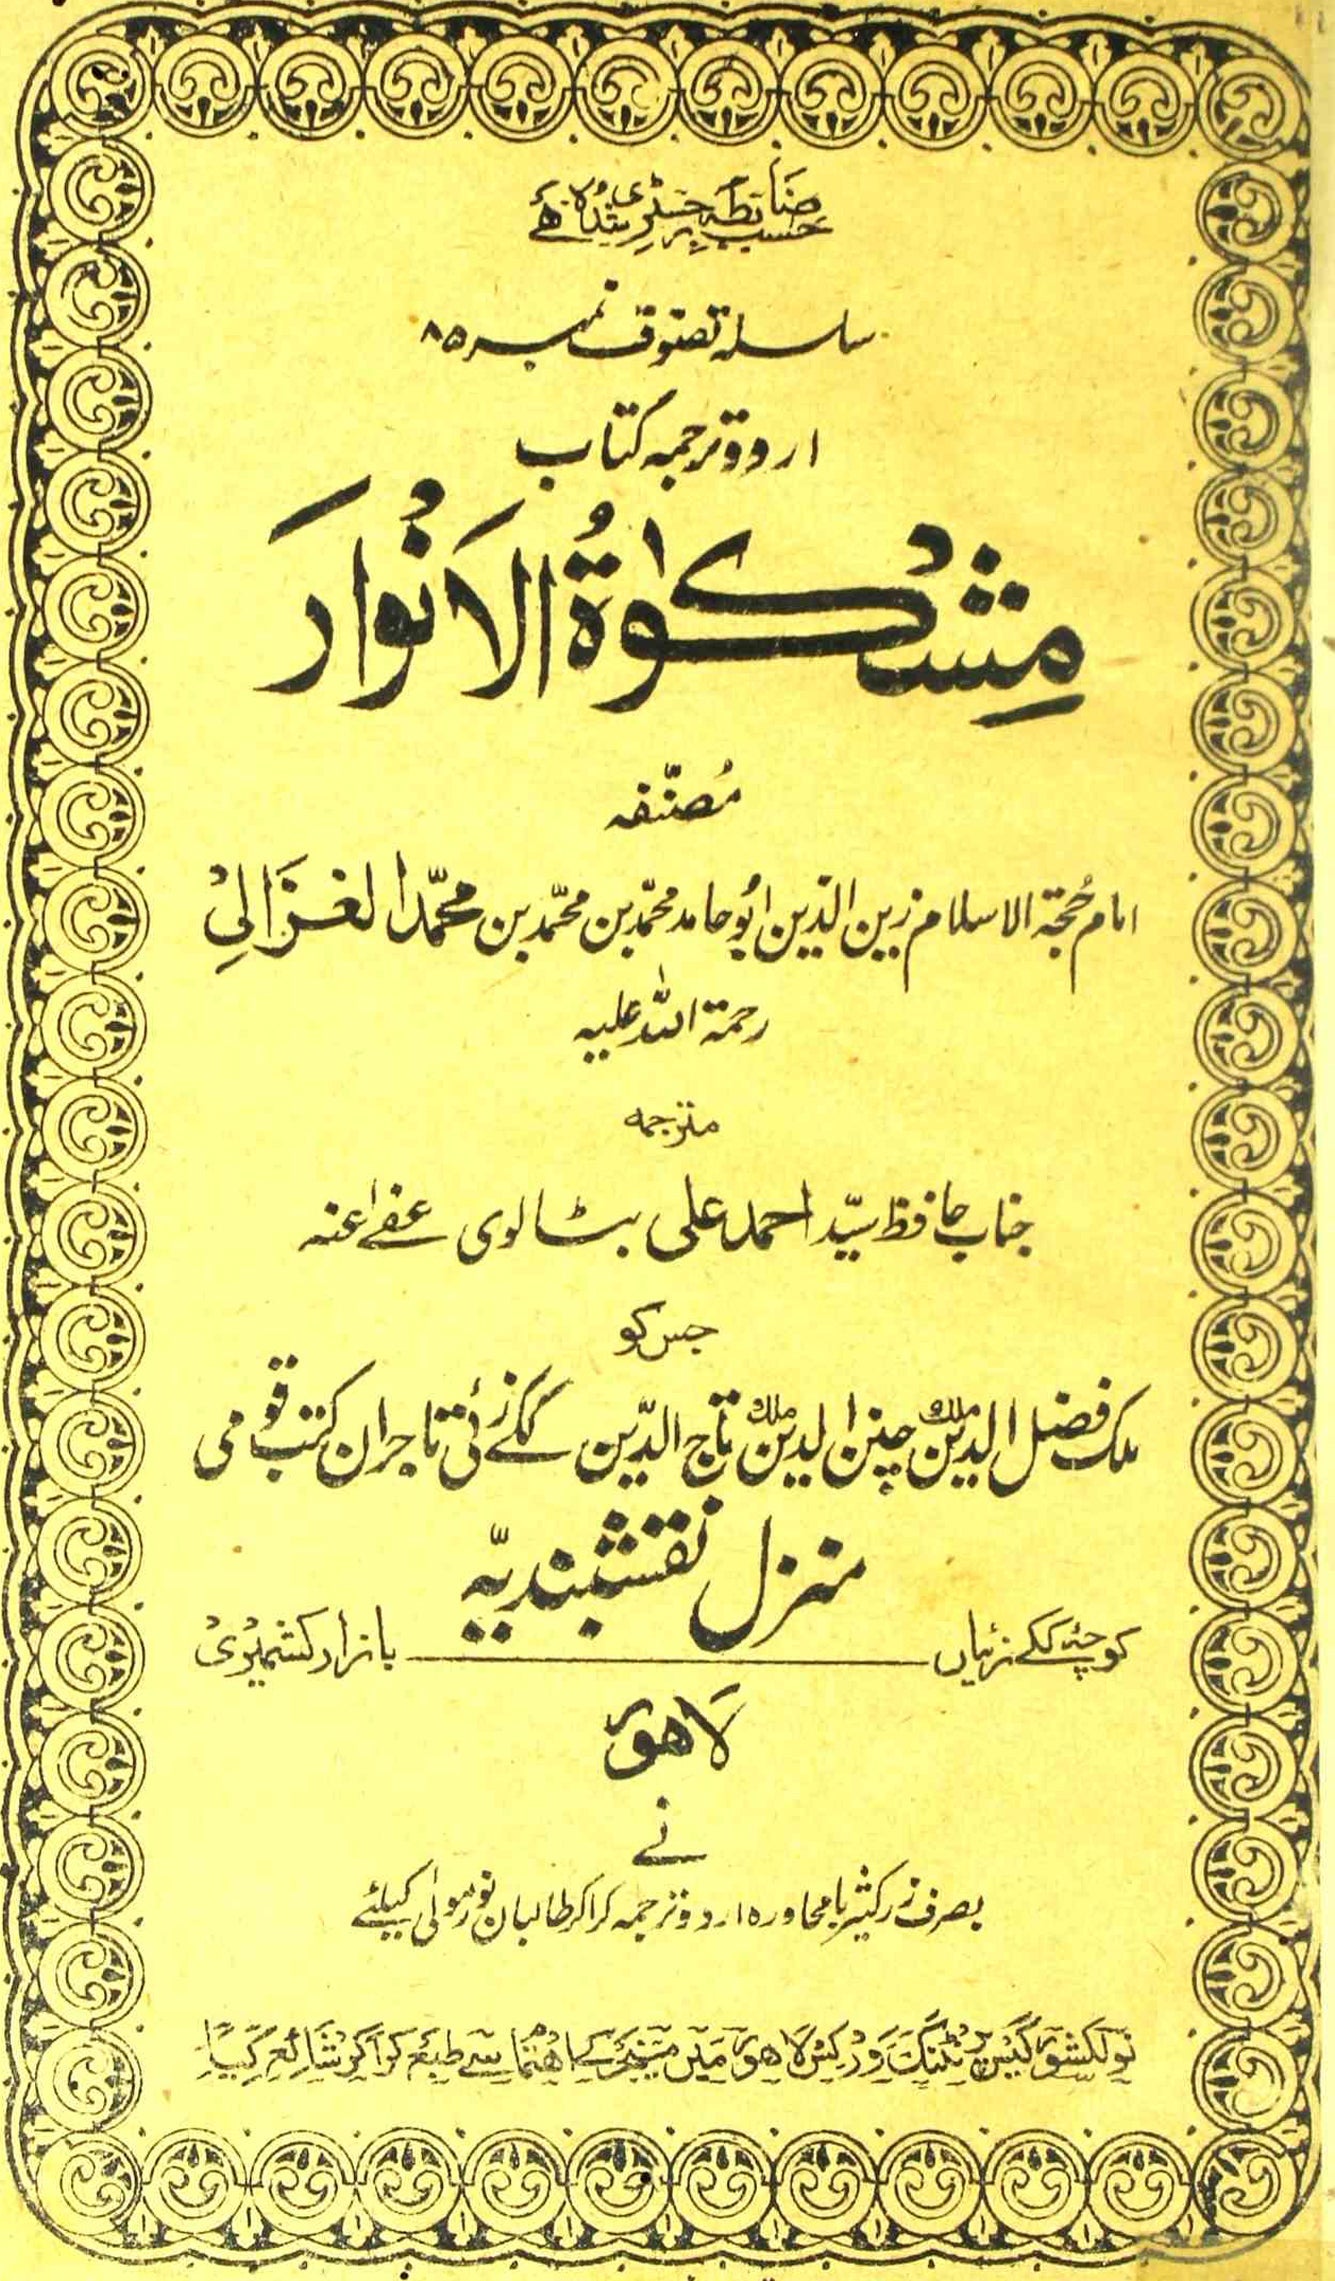 حسب ضابطہ رجسٹری شدہ ہے
سلسلہ تصوّف نمبر ۸۵
اردو ترجمہ کتاب
مِشْکٰوۃُ الْاَنْوَار
مُصنّفہ
امام حُجۃ الاسلام زین الدّین ابُو حامد محمّد بن محمّد بن محمّد الغزَالِیْ
رحمۃ اللہ علیہ
مترجمہ
جناب حافظ سیّد احمد علی بٹالوی عفے اعنہ
جس کو
ملک فضل الدین ملک چنن الدین ملک تاج الدّین ککے زئی تاجران کتب قومی
منزل نقشبندیّہ
کوچہ ککے زئیاں ــــــــــ بازار کشمیری
لاہور
نے
بصرف زر کثیر بامحاورہ اردو ترجمہ کرا کر طالبان نور مولٰی کیلئے
نولکشور گیس پرنٹنگ ورکس لاہور میں منیجر کے اہتمام سے طبع کرا کر شائع کیا